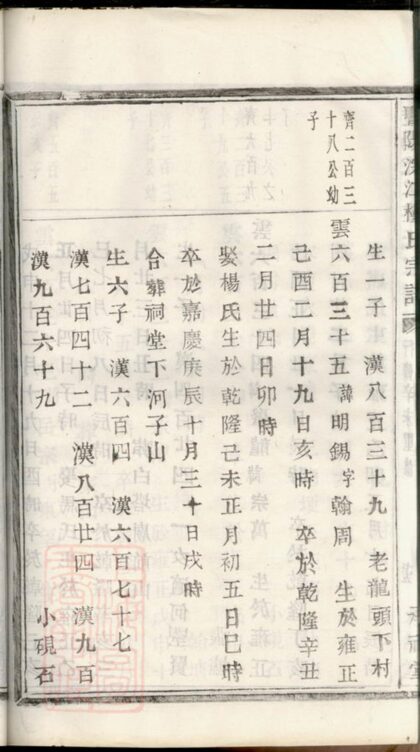 齊二百三
十八公幼
子
生一子 漢八百三十九 老龍頭下村
雲六百三十五 諱明錫 字翰周 生於雍正
己酉二月十九日亥時 卒於乾隆辛丑
二月廿四日卯時
娶楊氏生於乾隆己未正月初五日巳時
卒於嘉慶庚辰十月三十日戌時
合葬祠堂下河子山
生六子 漢六百四 漢六百七十七
漢七百四十二 漢八百廿四 漢九百
漢九百六十九 小硯石